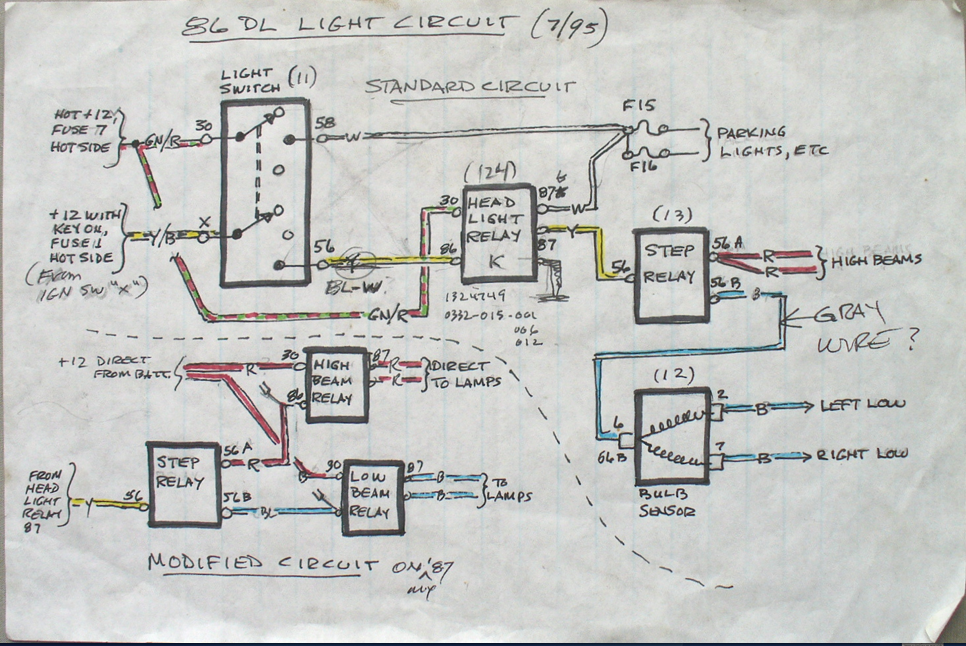 86 DL LIGHT CIRCUIT (7/95)
LIGHT
SWITCH (11)
STANDARD CIRCUIT
HOT +12,
FUSE 7
HOT SIDE
GN/R
30
58
W
F15
F16
PARKING
LIGHTS, ETC
+12 WITH
KEY ON,
FUSE 11
HOT SIDE
(From
IGN SW, "X")
Y/B
X
56
Y
BL-W
GN/R
(124)
30
86
HEAD
LIGHT
RELAY
K
87
W
87
Y
1324749
0332-015-001
006
012
(13)
56
STEP
RELAY
56A
R
R
HIGH BEAMS
HIGH BEAMS
56B
B
GRAY
WIRE?
(12)
6
66B
2
B
LEFT LOW
7
B
RIGHT LOW
BULB
SENSOR
+12 DIRECT
FROM BATT.
R
30
86
HIGH
BEAM
RELAY
87
R
R
DIRECT
TO LAMPS
FROM
HEAD
LIGHT
RELAY
87
Y
56
STEP
RELAY
56A
R
56B
BL
LOW
BEAM
RELAY
87
B
B
TO
LAMPS
MODIFIED CIRCUIT ON '87
my